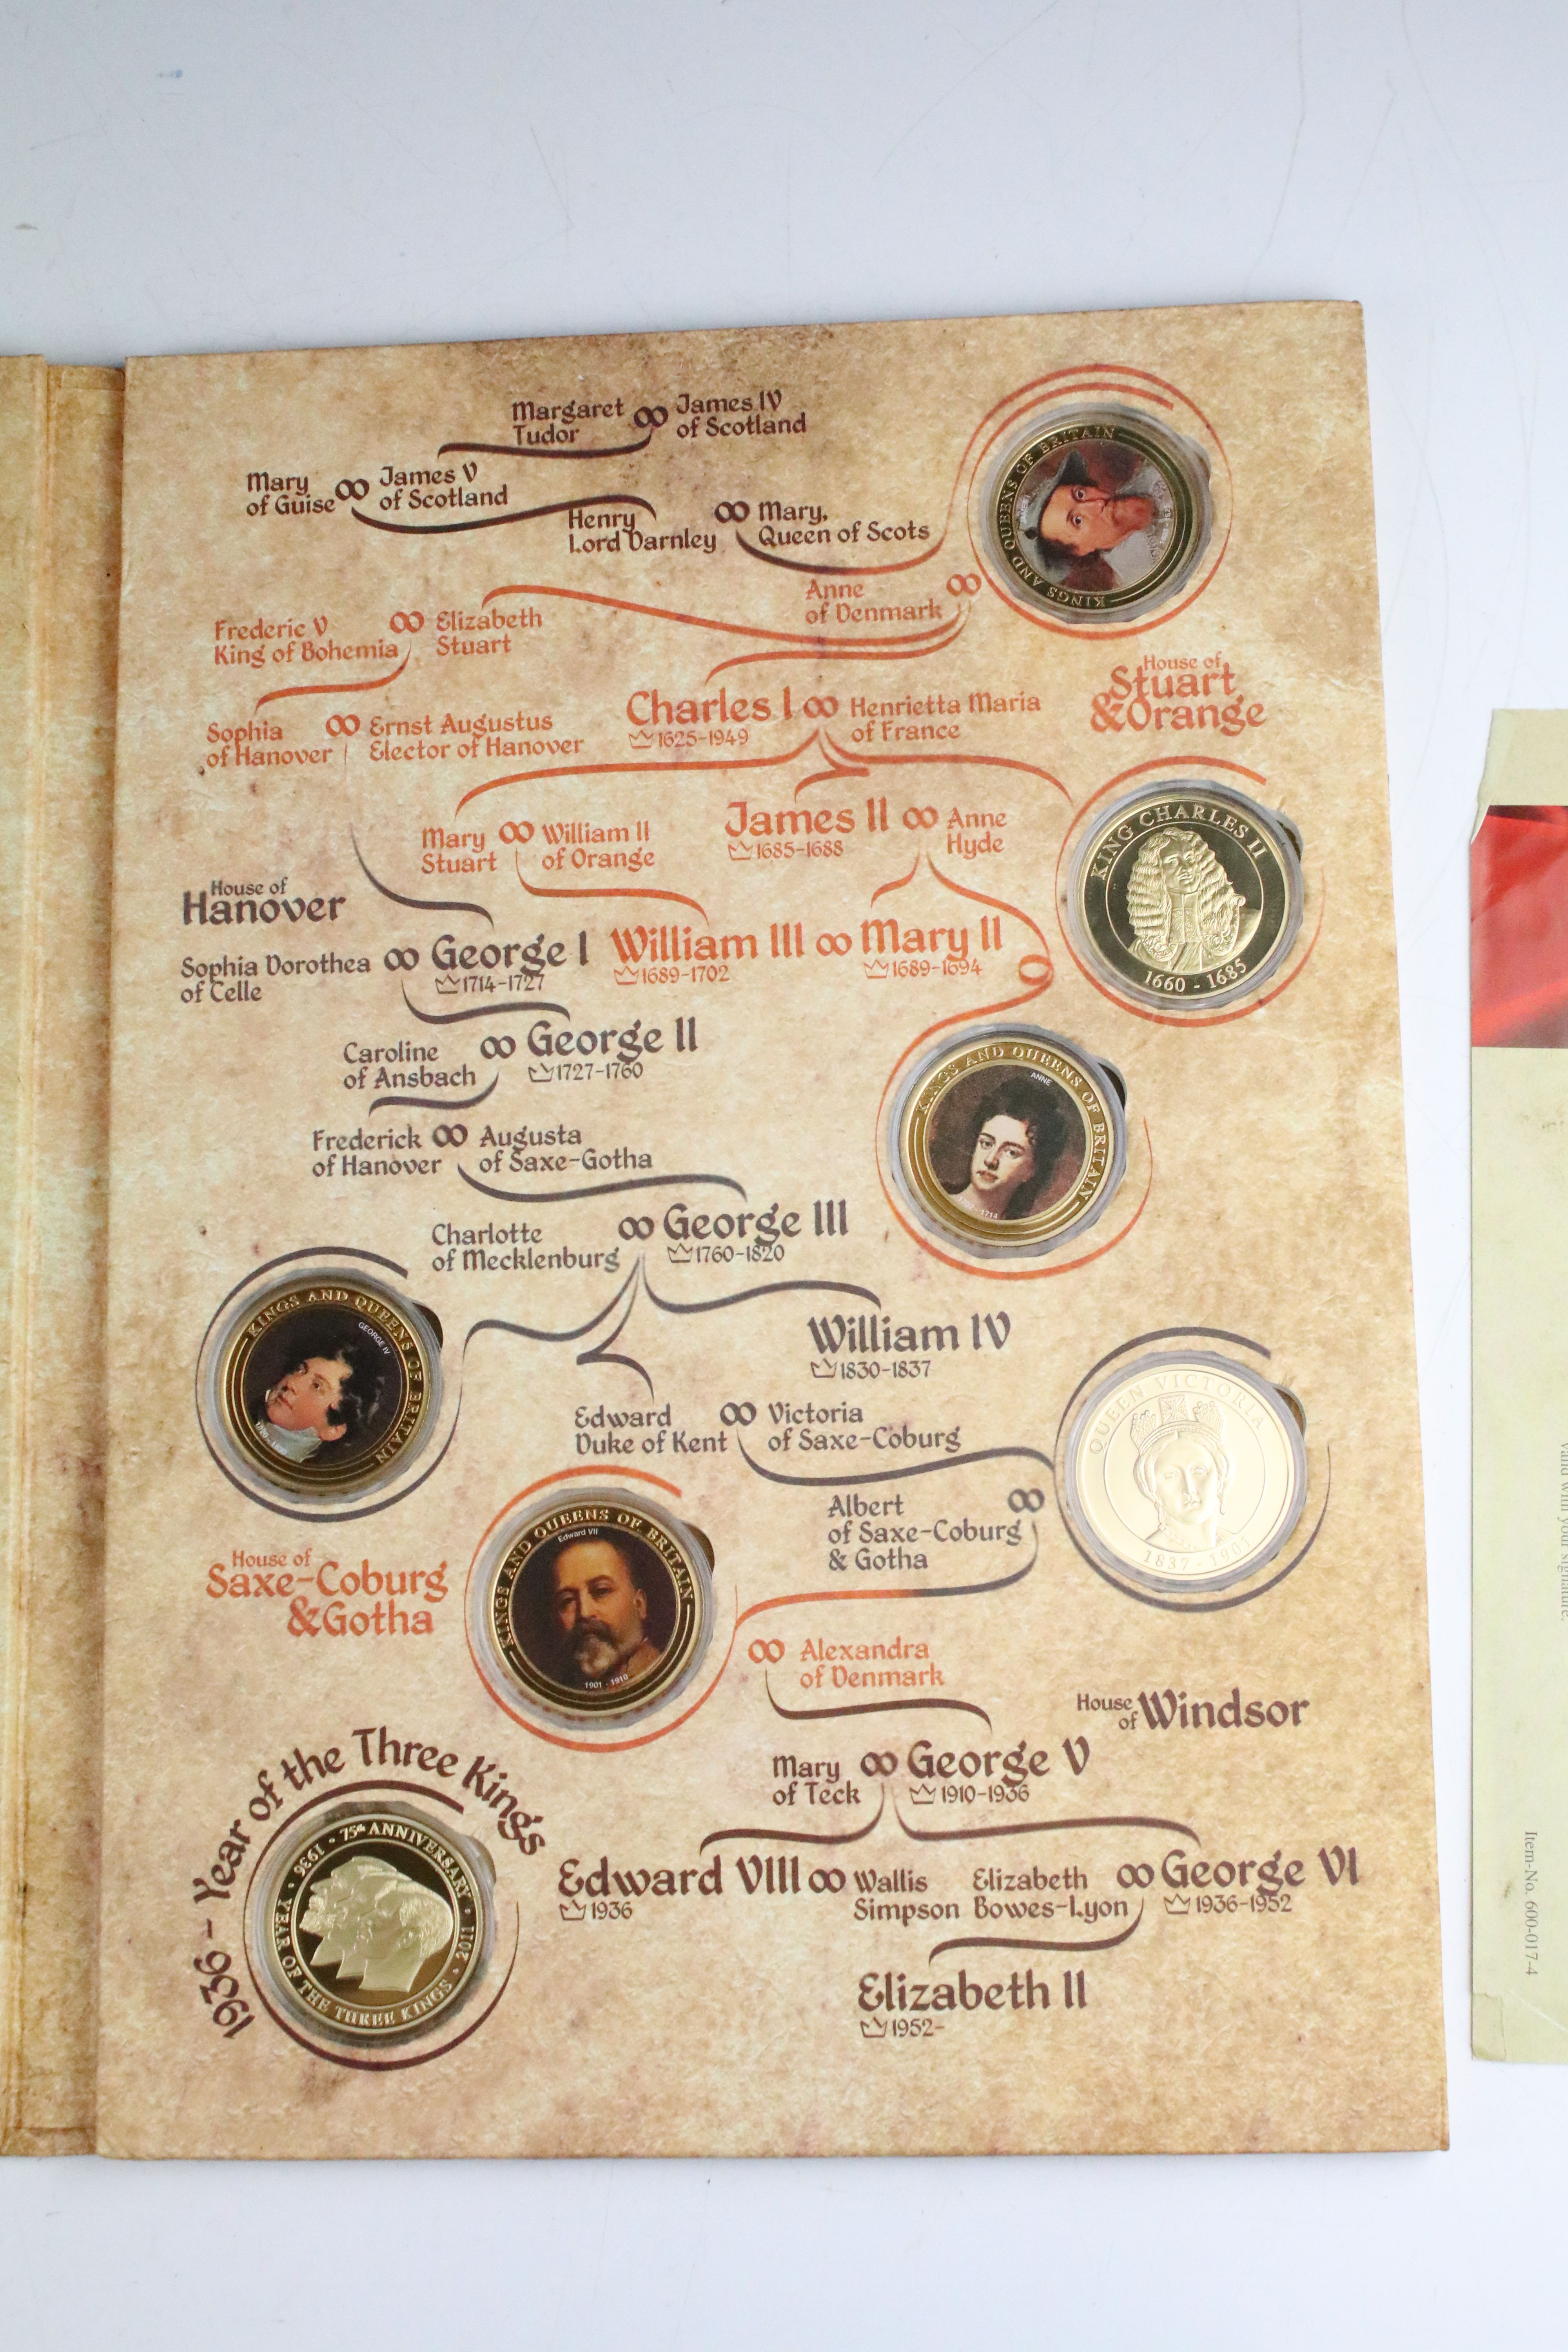 Margaret
Tudor
∞
James IV
of Scotland
Mary
of Guise
∞
James V
of Scotland
Henry
Lord Darnley
∞
Mary,
Queen of Scots
KINGS AND QUEENS OF BRITAIN
Anne
of Denmark
∞
Frederic V
King of Bohemia
∞
Elizabeth
Stuart
House of
Stuart
&Orange
Sophia
of Hanover
∞
Ernst Augustus
Elector of Hanover
Charles I
1625-1949
∞
Henrietta Maria
of France
Mary
Stuart
∞
William II
of Orange
James II
1685-1688
∞
Anne
Hyde
KING CHARLES II
1660 - 1685
House of
Hanover
Sophia Dorothea
of Celle
∞
George I
1714-1727
William III
1689-1702
∞
Mary II
1689-1694
Caroline
of Ansbach
∞
George II
1727-1760
KINGS AND QUEENS OF BRITAIN
ANNE
1714
Frederick
of Hanover
∞
Augusta
of Saxe-Gotha
Charlotte
of Mecklenburg
∞
George III
1760-1820
KINGS AND QUEENS OF BRITAIN
GEORGE IV
William IV
1830-1837
Edward
Duke of Kent
∞
Victoria
of Saxe-Coburg
QUEEN VICTORIA
1837 - 1901
Albert
of Saxe-Coburg
& Gotha
∞
House of
Saxe-Coburg
&Gotha
KINGS AND QUEENS OF BRITAIN
Edward VII
1901 - 1910
∞
Alexandra
of Denmark
House
of
Windsor
Mary
of Teck
∞
George V
1910-1936
1936 - Year of the Three Kings
1936 • 75th ANNIVERSARY • 2011 •
YEAR OF THE THREE KINGS
Edward VIII
1936
∞
Wallis
Simpson
Elizabeth
Bowes-Lyon
∞
George VI
1936-1952
Elizabeth II
1952-
valid with your signature.
Item-No. 600-017-4